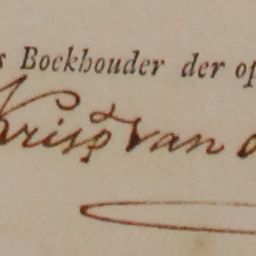 s Boekhouder der op
Krisp van d